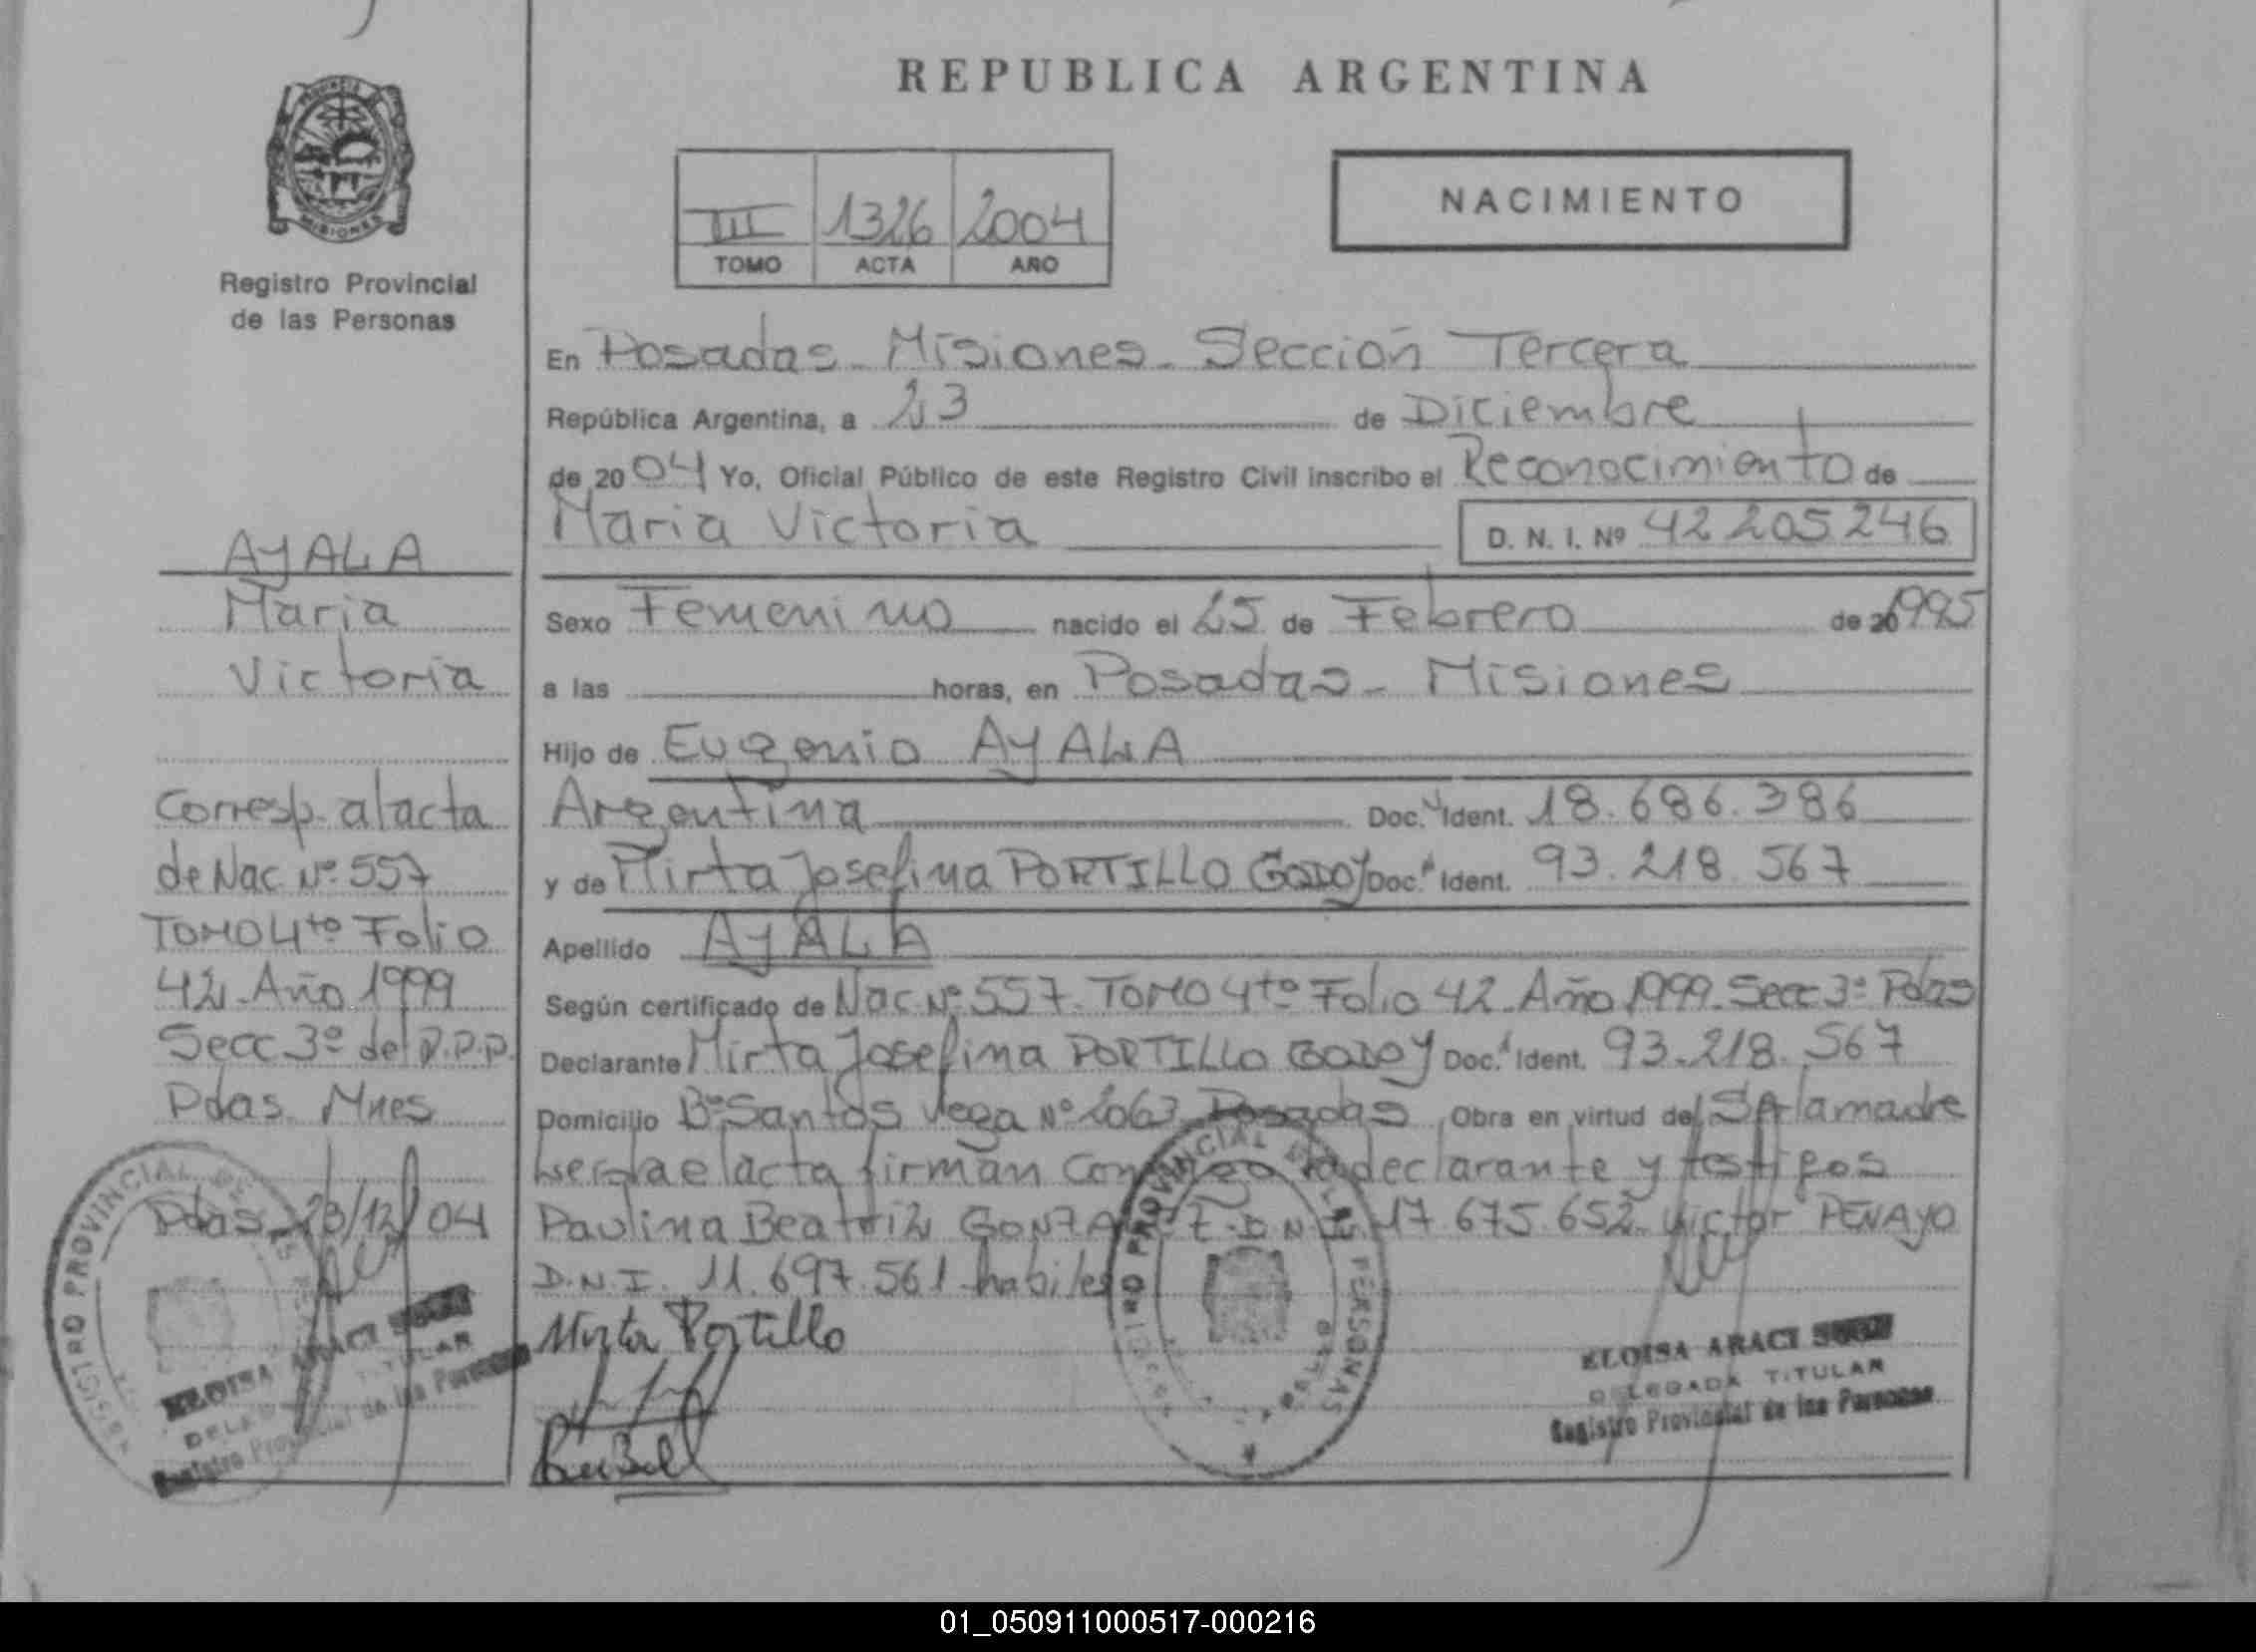 REPUBLICA ARGENTINA
PROVINCIA DE
MISIONES
Registro Provincial
de las Personas
III 1326 2004
TOMO ACTA AÑO
NACIMIENTO
En Posadas - Misiones - Sección Tercera
República Argentina, a 23 de Diciembre
de 2004 Yo, Oficial Público de este Registro Civil inscribo el Reconocimiento de
Maria Victoria D. N. I. Nº 42 205 246
Sexo Femenino nacido el 25 de Febrero de 20 1995
a las horas, en Posadas - Misiones
Hijo de Eugenio AYALA
Argentina Doc. Ident. 18.686.386
y de Mirta Josefina PORTILLO GODOY Doc. Ident. 93.218.567
Apellido AYALA
Según certificado de Nac Nº 557. TOMO 4to Folio 42. Año 1999. Secc 3º Pdas
Declarante Mirta Josefina PORTILLO GODOY Doc. Ident. 93.218.567
Domicilio Bº Santos Vega Nº 2063 Posadas Obra en virtud de la madre
el acta firman declarante y testigos
Paulina Beatriz D.N.I. 17.675.652 Victor PENAYO
D.N.I. 11.697.561 habiles
Mirta Portillo
ELOISA ARACI
DELEGADA TITULAR
Registro Provincial de las Personas
REGISTRO PROVINCIAL DE LAS PERSONAS
AYALA
Maria
Victoria
Corresp. al acta
de Nac Nº 557
TOMO 4to Folio
42. Año 1999
Secc 3º del R.P.P.
Pdas Mnes
Pdas 23/12/04
REGISTRO PROVINCIAL DE LAS
ELOISA ARACI
TITULAR
Registro Provincial de las Personas
01_050911000517-000216